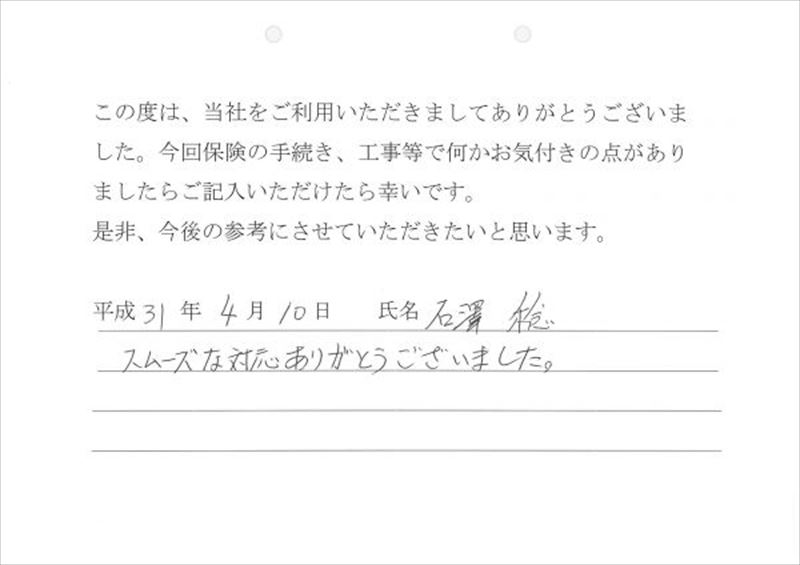 この度は、当社をご利用いただきましてありがとうございま
した。今回保険の手続き、工事等で何かお気付きの点があり
ましたらご記入いただけたら幸いです。
是非、今後の参考にさせていただきたいと思います。
平成31年 4月10日 氏名 石澤 稔
スムーズな対応ありがとうございました。